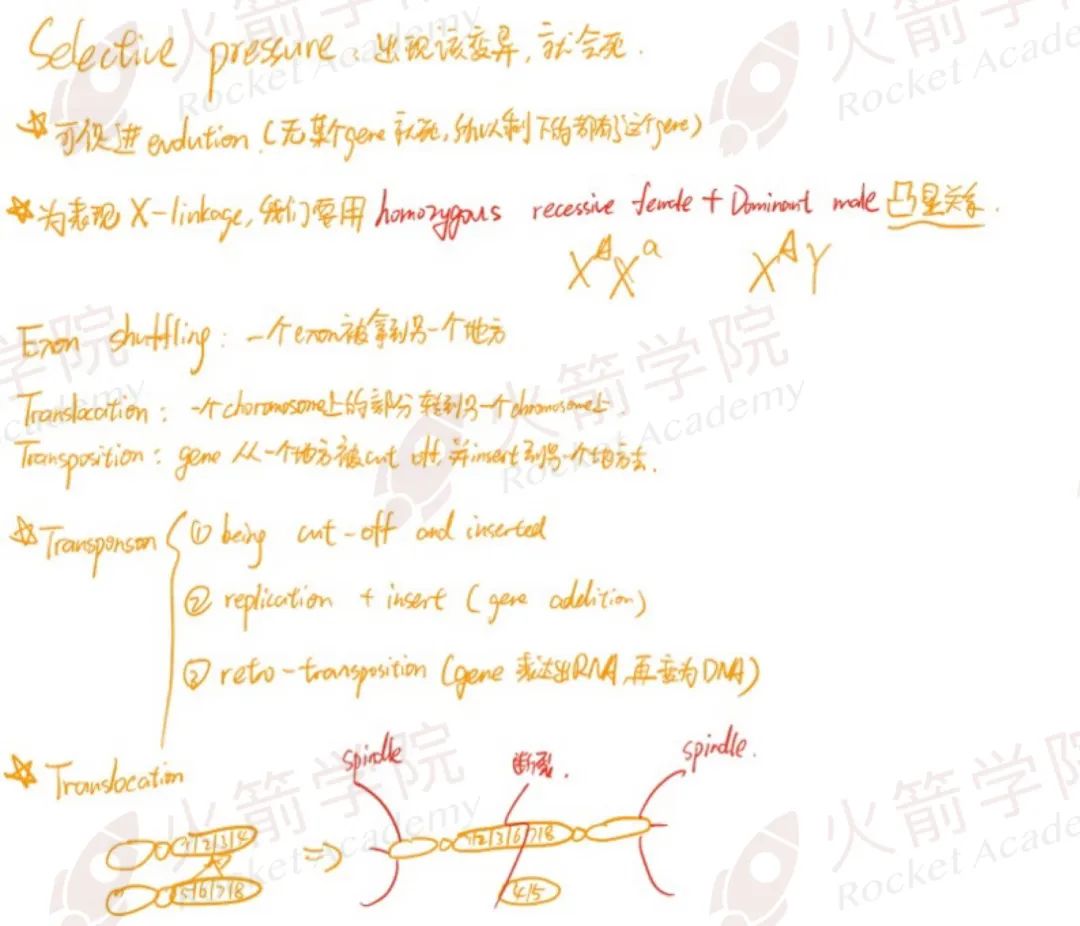 Selective pressure: 出现该变异,就会死.
☆可促进evolution.(无某个gene就死,所以剩下的都有了这个gene)
☆为表现X-linkage,我们要用homozygous recessive female + Dominant male 凸显关系.
XᴬXᵃ XᴬY
Exon shuffling: 一个exon被拿到另一个地方
Translocation: 一个choromosome上的部分转到另一个chromosome上.
Transposition: gene从一个地方被cut off,并insert到另一个地方去.
☆Transponson
① being cut-off and inserted
② replication + insert (gene addition)
③ retro-transposition (gene表达出RNA,再变为DNA)
☆Translocation
spindle 断裂. spindle.
1/2/3/4
1/2/3/6/7/8
5/6/7/8
4/5
火箭学院
Rocket Academy